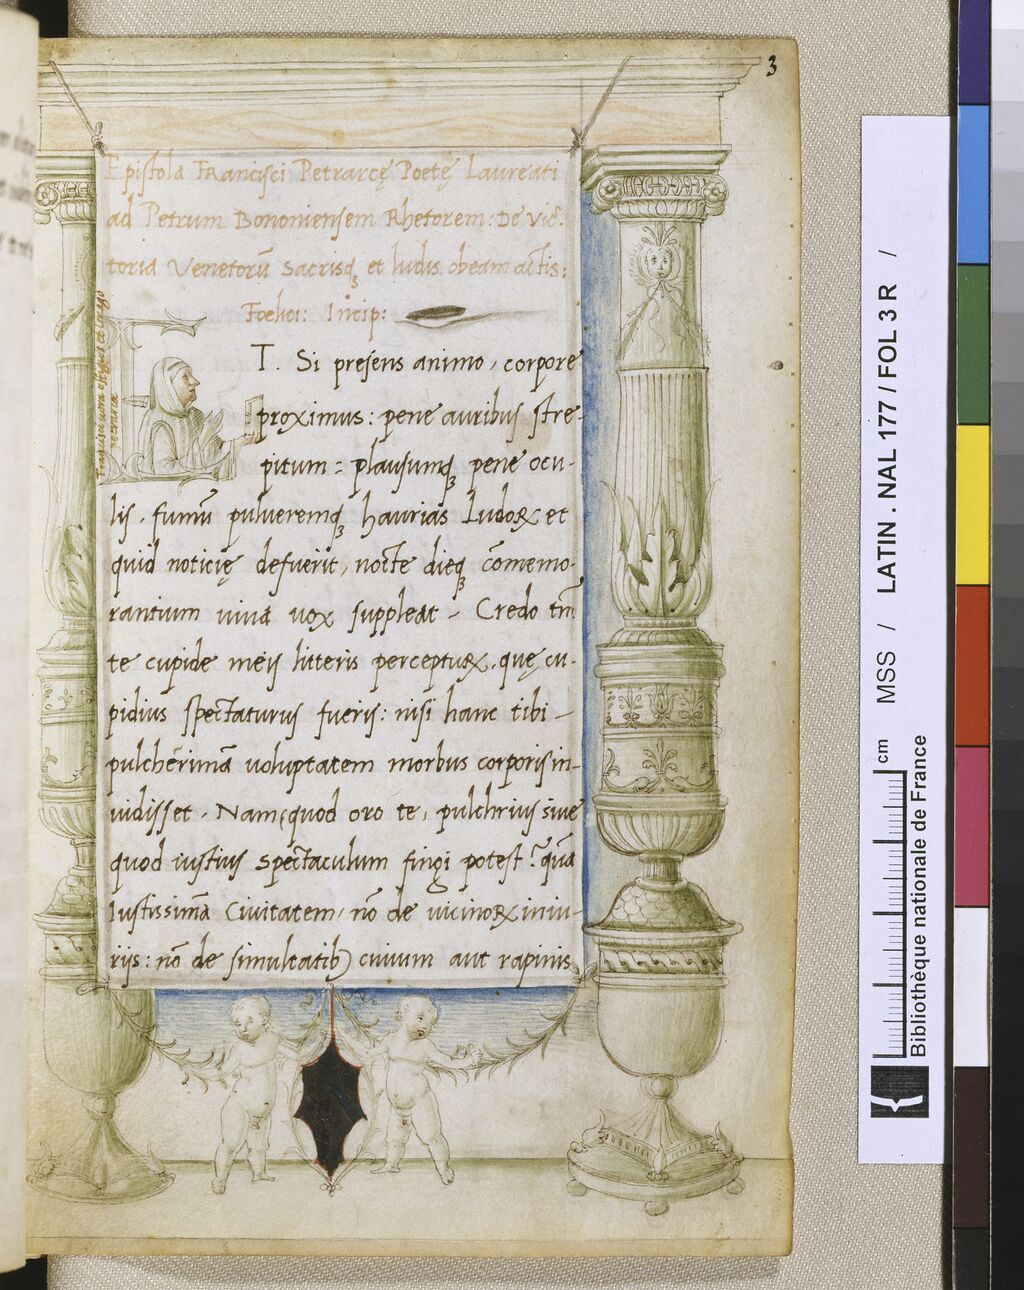 3
Epistola Francisci Petrarcę Poetę Laureati
ad Petrum Bononiensem Rhetorem: De Vic-
toria Venetorū Sacrisqꝫ et ludis obeam actis:
Foelici: Incip:
Francisci uera effigies et imago
Petrarcae
ET. Si presens animo, corpore
proximus: pene auribus stre-
pitum: plausumqꝫ pene ocu-
lis. fumū pulueremqꝫ haurias Ludoꝝ et
quid noticię defuerit, nocte dieqꝫ cōmemo-
rantium uiua uox suppleat - Credo tn̄
te cupide meis litteris perceptuꝝ. quę cu-
pidius spectaturus fueris: nisi hanc tibi -
pulcherrimā uoluptatem morbus corporis in-
uidisset. Nam, quod oro te, pulchrius siue
quod iustius spectaculum fingi potest? quā
Iustissimā Ciuitatem, nō de uicinoꝝ iniu-
riis: nō de simultatibꝫ ciuium aut rapinis
MSS / LATIN . NAL 177 / FOL 3 R /
cm
Bibliothèque nationale de France